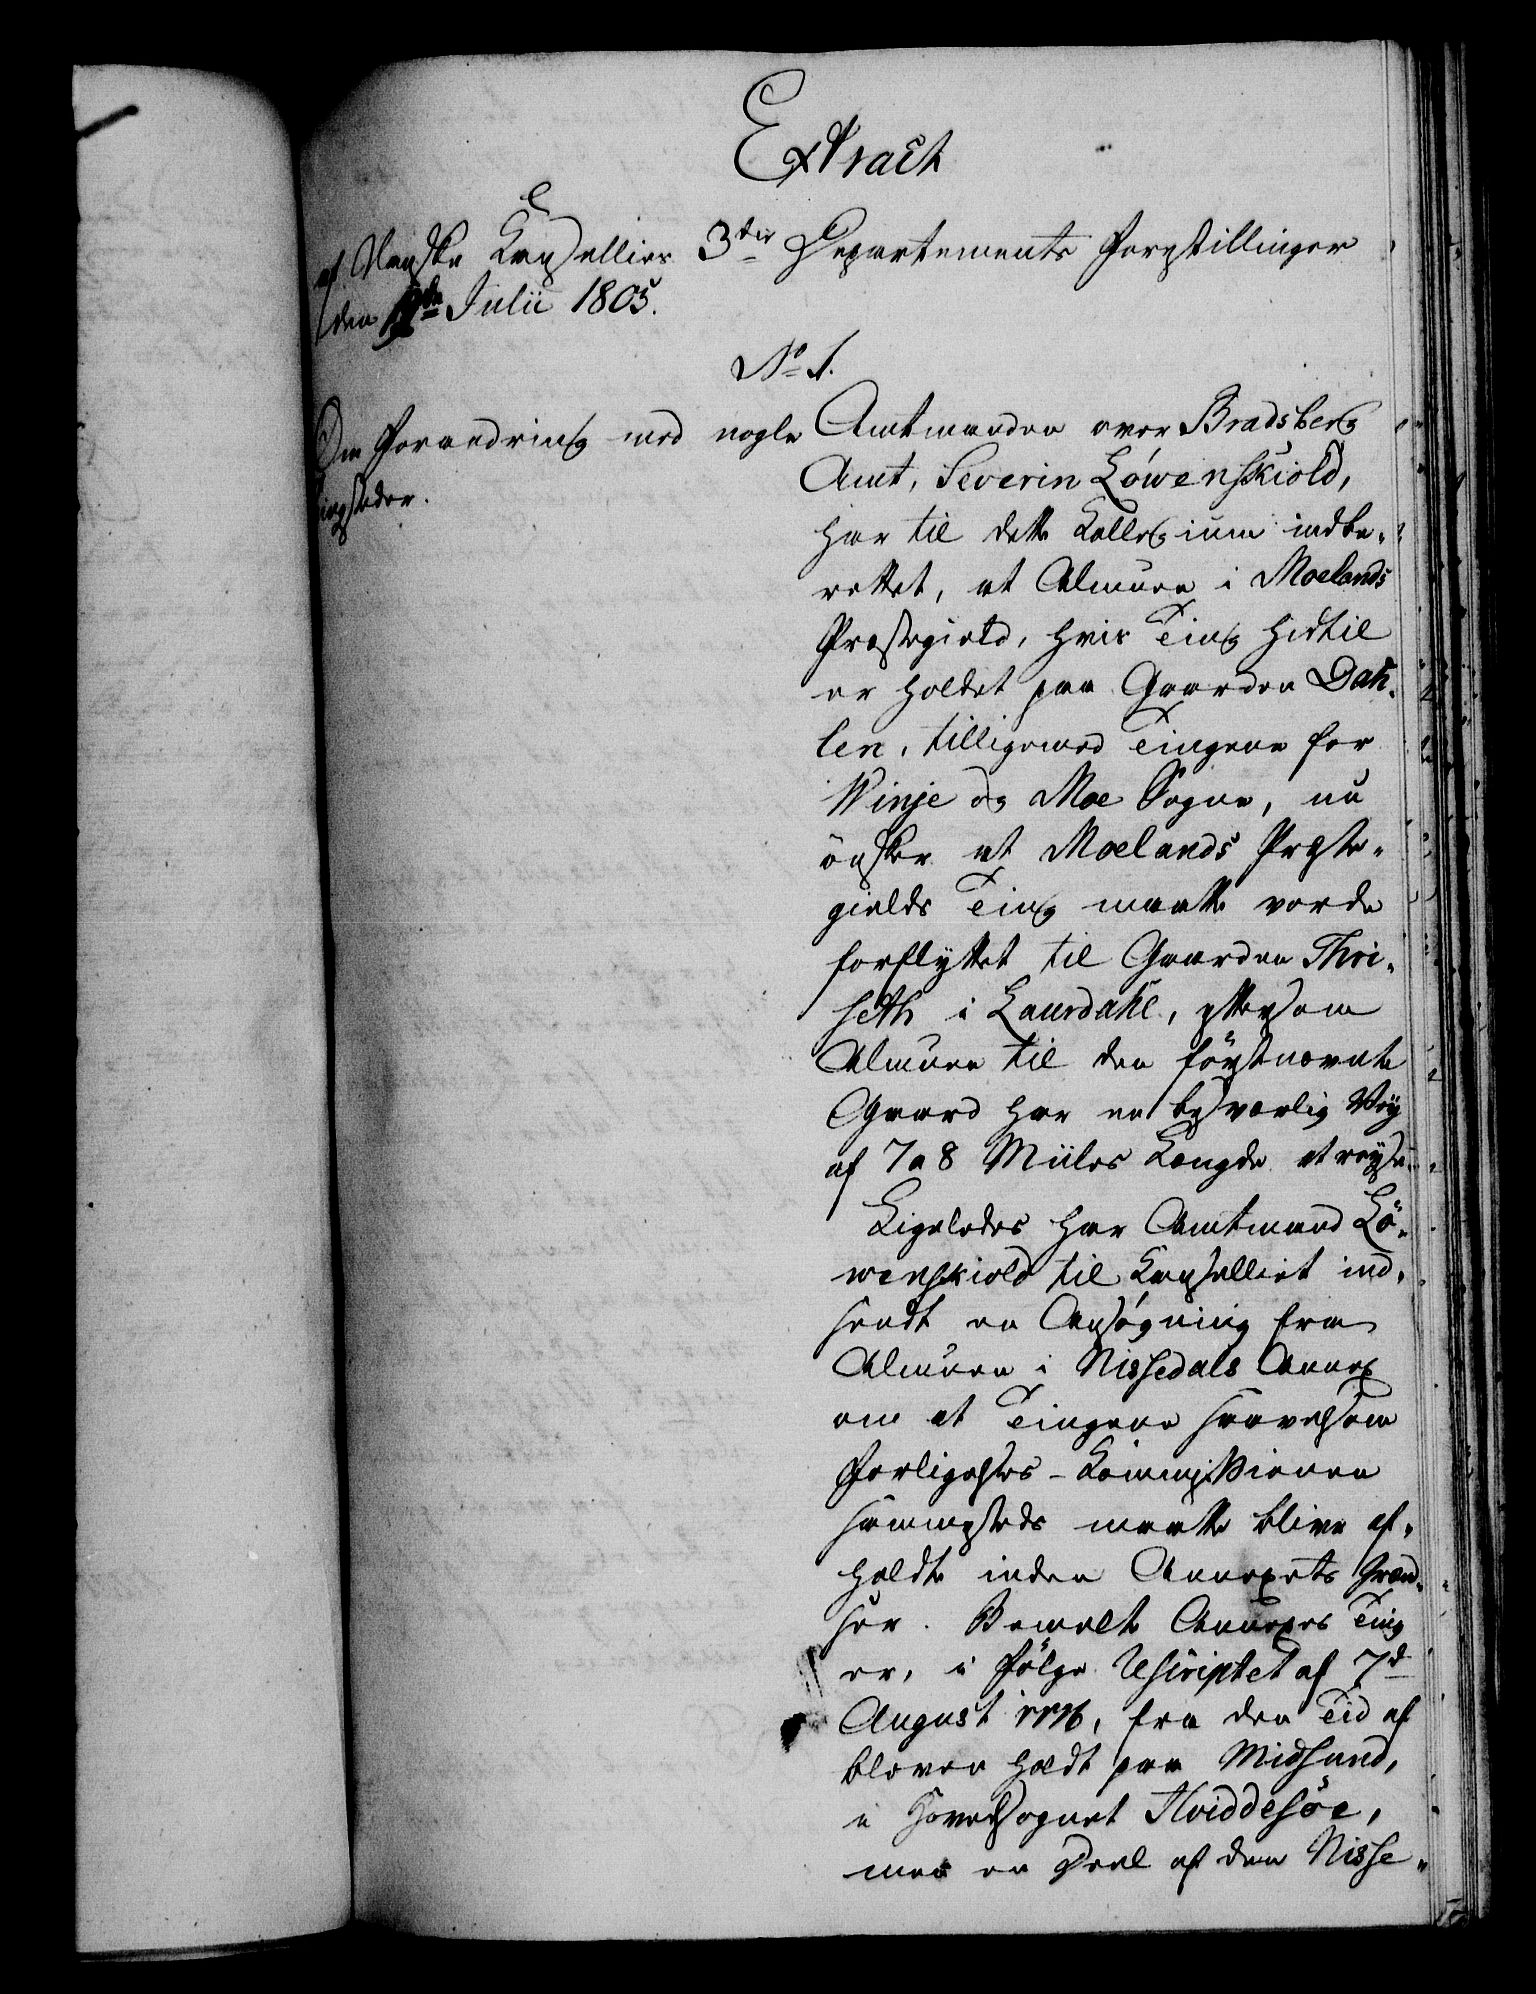 Extract
af Danske Kancellies 3die Departements Forestillinger
den Julii 1805.
No 1.
Om Forandring med nogle
Tingsteder.
Amtmanden over Bradsberg
Amt, Severin Löwenskiold,
har til dette Collegium indbe-
rettet, at Almuen i Moelands
Præstegield, hvis Ting hidtil
er holdet paa Gaarden Dah-
len, tilligemed Tingene for
Winje og Moe Sogne, nu
ønsker at Moelands Præste-
gields Ting maatte vorde
forflyttet til Gaarden Thvi-
seth i Laurdahl, eftersom
Almuen til den førstnævnte
Gaard har en besværlig Vey
af 7 a 8 Miiles Længde at reyse.
Ligeledes har Amtmand Lö-
wenskiold til Kancelliet ind-
sendt en Ansøgning fra
Almuen i Nissedals Annex
om at Tingene saavelsom
Forligelses-Commissionen
sammesteds maatte blive af-
holdte inden Annexets Grænd-
ser. Bemelte Annexes Ting
er, i Følge Rescriptet af 7d
August 1776, fra den Tid af
bleven holdt paa Midsund,
i Hovedsognet Hviddesöe,
men en Deel af den Nisse-